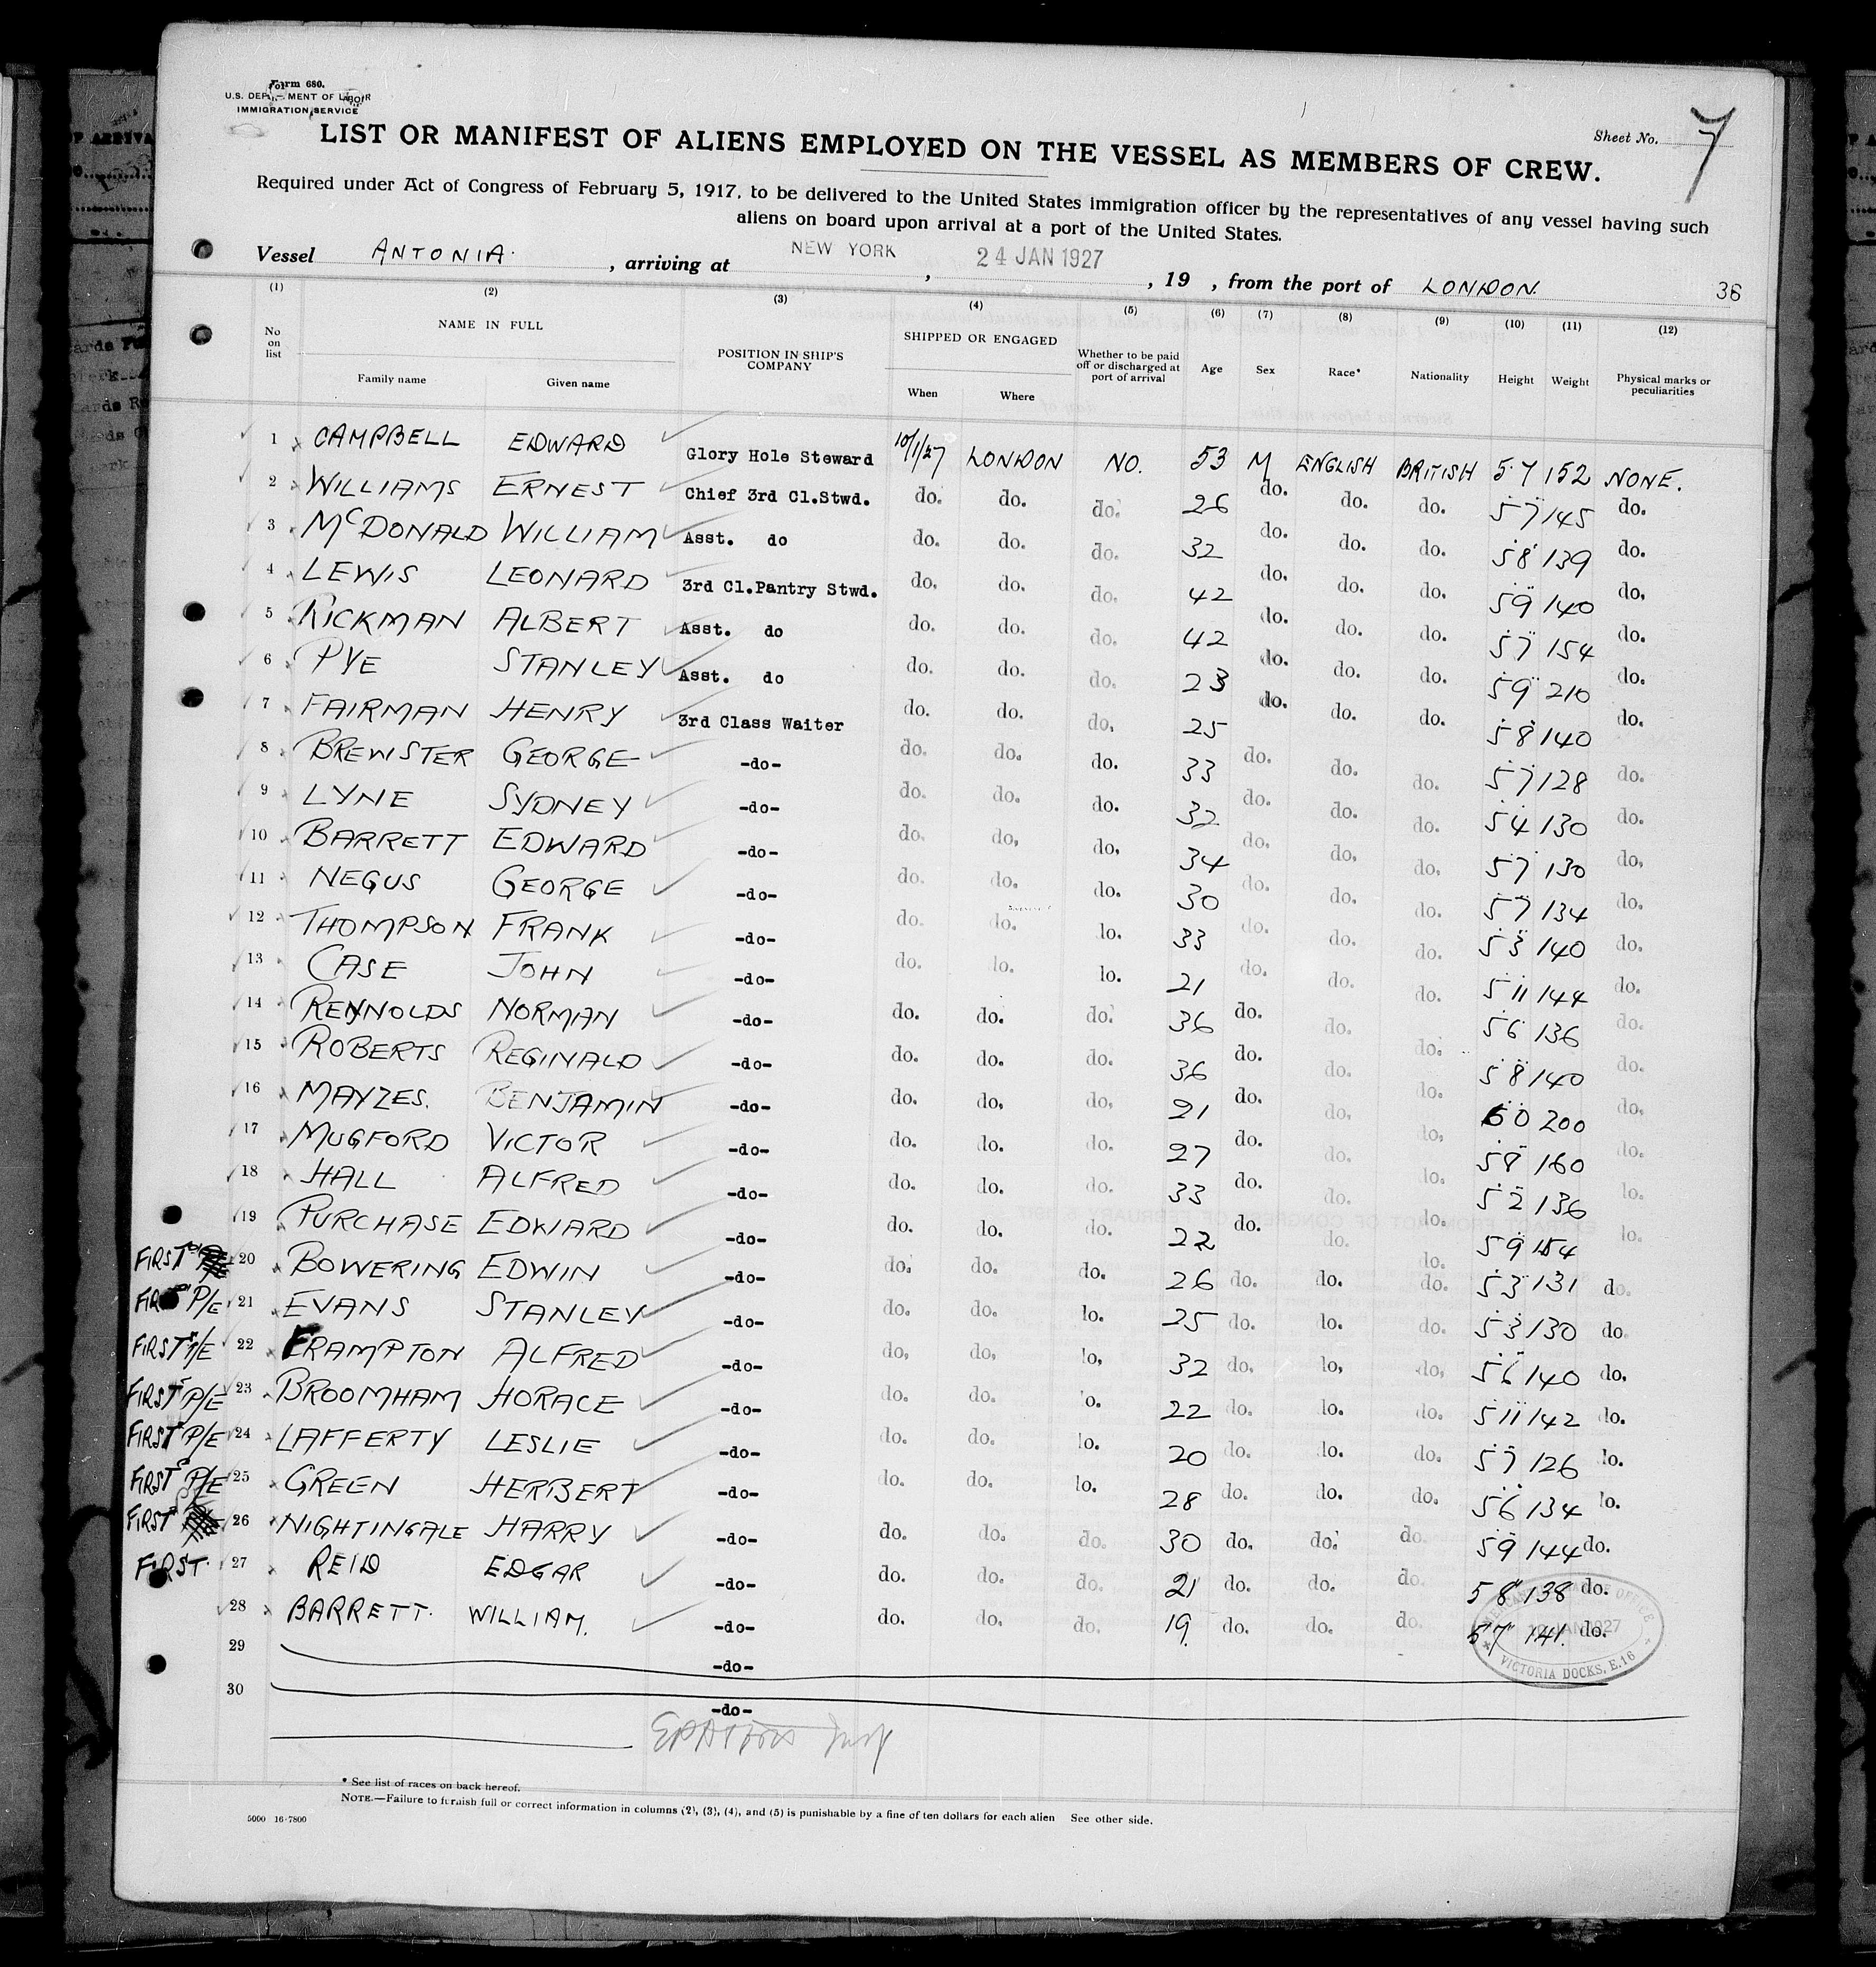 Form 680.
U.S. DEPARTMENT OF LABOR
IMMIGRATION SERVICE
Sheet No. 7
LIST OR MANIFEST OF ALIENS EMPLOYED ON THE VESSEL AS MEMBERS OF CREW.
Required under Act of Congress of February 5, 1917, to be delivered to the United States immigration officer by the representatives of any vessel having such
aliens on board upon arrival at a port of the United States.
Vessel ANTONIA. , arriving at NEW YORK , 24 JAN 1927 , 19 , from the port of LONDON 36
(1) (2) (3) (4) (5) (6) (7) (8) (9) (10) (11) (12)
No on list NAME IN FULL Family name Given name POSITION IN SHIP'S COMPANY SHIPPED OR ENGAGED When Where Whether to be paid off or discharged at port of arrival Age Sex Race* Nationality Height Weight Physical marks or peculiarities
1 CAMPBELL EDWARD Glory Hole Steward 10/1/27 LONDON NO. 53 M ENGLISH BRITISH 5 7 152 NONE.
2 WILLIAMS ERNEST Chief 3rd Cl.Stwd. do. do. do. 26 do. do. do. 5 7 145 do.
3 McDONALD WILLIAM Asst. do do. do. do. 32 do. do. do. 5 8 139 do.
4 LEWIS LEONARD 3rd Cl.Pantry Stwd. do. do. do. 42 do. do. do. 5 9 140 do.
5 RICKMAN ALBERT Asst. do do. do. do. 42 do. do. do. 5 7 154 do.
6 PYE STANLEY Asst. do do. do. do. 23 do. do. do. 5 9 210 do.
7 FAIRMAN HENRY 3rd Class Waiter do. do. do. 25 do. do. do. 5 8 140 do.
8 BREWSTER GEORGE -do- do. do. do. 33 do. do. do. 5 7 128 do.
9 LYNE SYDNEY -do- do. do. do. 32 do. do. do. 5 4 130 do.
10 BARRETT EDWARD -do- do. do. do. 34 do. do. do. 5 7 130 do.
11 NEGUS GEORGE -do- do. do. do. 30 do. do. do. 5 7 134 do.
12 THOMPSON FRANK -do- do. do. lo. 33 do. do. do. 5 3 140 do.
13 CASE JOHN -do- do. lo. lo. 21 do. do. do. 5 11 144 do.
14 REYNOLDS NORMAN -do- do. do. do. 36 do. do. do. 5 6 136 do.
15 ROBERTS REGINALD -do- do. do. do. 36 do. do. do. 5 8 140 do.
16 MAYZES. BENJAMIN -do- do. do. do. 21 do. do. do. 6 0 200 do.
17 MUGFORD VICTOR -do- do. do. do. 27 do. do. lo. 5 8 160 do.
18 HALL ALFRED -do- do. do. do. 33 do. do. lo. 5 2 136 lo.
19 PURCHASE EDWARD -do- do. do. do. 22 do. do. lo. 5 9 154 lo.
FIRST 20 BOWERING EDWIN -do- do. do. do. 26 do. do. do. 5 3 131 do.
FIRST P/E 21 EVANS STANLEY -do- do. do. lo. 25 do. lo. do. 5 3 130 do.
FIRST P/E 22 FRAMPTON ALFRED -do- do. do. lo. 32 do. lo. do. 5 6 140 do.
FIRST P/E 23 BROOMHAM HORACE -do- do. do. o. 22 do. lo. do. 5 11 142 lo.
FIRST P/E 24 LAFFERTY LESLIE -do- do. do. lo. 20 do. lo. do. 5 7 126 lo.
FIRST P/E 25 GREEN HERBERT -do- do. do. lo. 28 do. do. do. 5 6 134 lo.
FIRST 26 NIGHTINGALE HARRY -do- do. do. do. 30 do. do. do. 5 9 144 do.
FIRST. 27 REID EDGAR -do- do. do. do. 21 do. do. do. 5 8 138 do.
28 BARRETT. WILLIAM. -do- do. do. do. 19. do. do. do. 5 7 141. do.
29 -do-
30 -do-
JAN 1927
VICTORIA DOCKS, E.16
* See list of races on back hereof.
NOTE.—Failure to furnish full or correct information in columns (2), (3), (4), and (5) is punishable by a fine of ten dollars for each alien See other side.
5000 16-7800